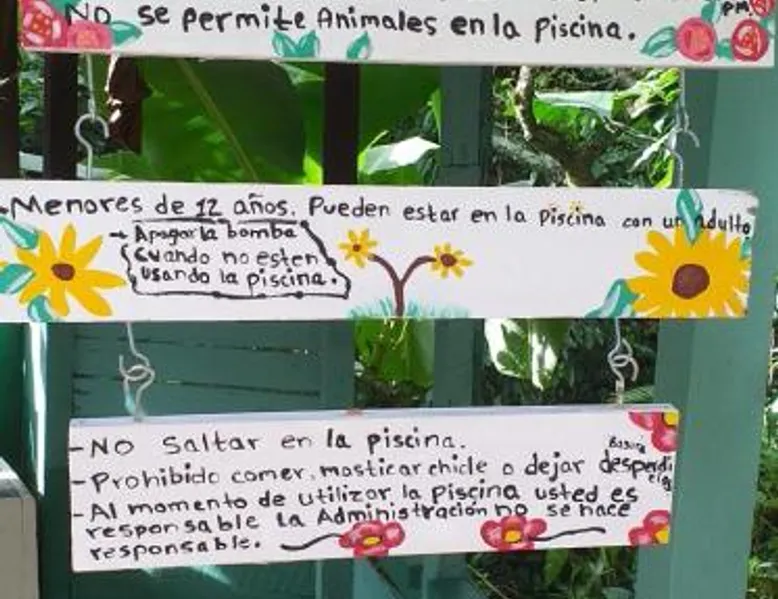 PM.
No se permite Animales en la Piscina.
-Menores de 12 años. Pueden estar en la Piscina con un adulto
→ Apagar la bomba
cuando no esten
usando la piscina.
-No saltar en la piscina.
Basura
-Prohibido comer, masticar chicle o dejar desperdi
cios
-Al momento de utilizar la Piscina usted es
responsable la Administración no se hace
responsable.